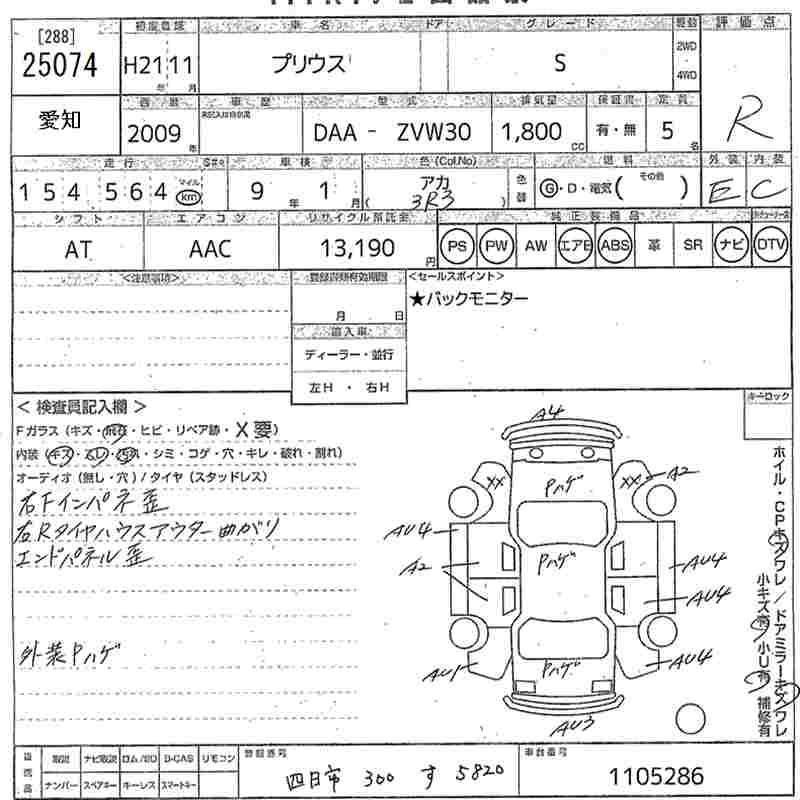 [288]
25074
初度登録
車名
ドア
グレード
駆動
評価点
H21 11
年 月
プリウス
S
2WD
4WD
R
愛知
西暦
車歴
型式
排気量
保証書
定員
2009 年
DAA - ZVW30
1,800 cc
有・無
5 名
走行
車検
色(Col.No)
燃料
外装
内装
154564
マイル
km
9 年 1 月
( アカ 3R3 )
色替
G・D・電気( その他 )
E
C
シフト
エアコン
リサイクル預託金
純正装備品
AT
AAC
13,190 円
PS
PW
AW
エアB
ABS
革
SR
ナビ
DTV
<注意事項>
登録書類有効期限
<セールスポイント>
月 日
★バックモニター
輸入車
ディーラー・並行
左H ・ 右H
< 検査員記入欄 >
キーロック
Fガラス(キズ・飛石・ヒビ・リペア跡・X要)
内装(キズ・スレ・汚れ・シミ・コゲ・穴・キレ・破れ・割れ)
オーディオ(無し・穴)/タイヤ(スタッドレス)
右Fインパネ歪
右Rタイヤハウスアウター曲がり
エンドパネル歪
外装Pハゲ
A4
XX
Pハゲ
XX
A2
AU4
A2
Pハゲ
AU4
AU4
AU1
Pハゲ
AU4
AU3
ホイル・CPキズワレ/ドアミラーキズワレ
小キズ有 小U有 補修有
取説
ナビ取説
ロム/SD
B-CAS
リモコン
ナンバー
スペアキー
キーレス
スマートキー
登録番号
四日市 300 す 5820
車台番号
1105286